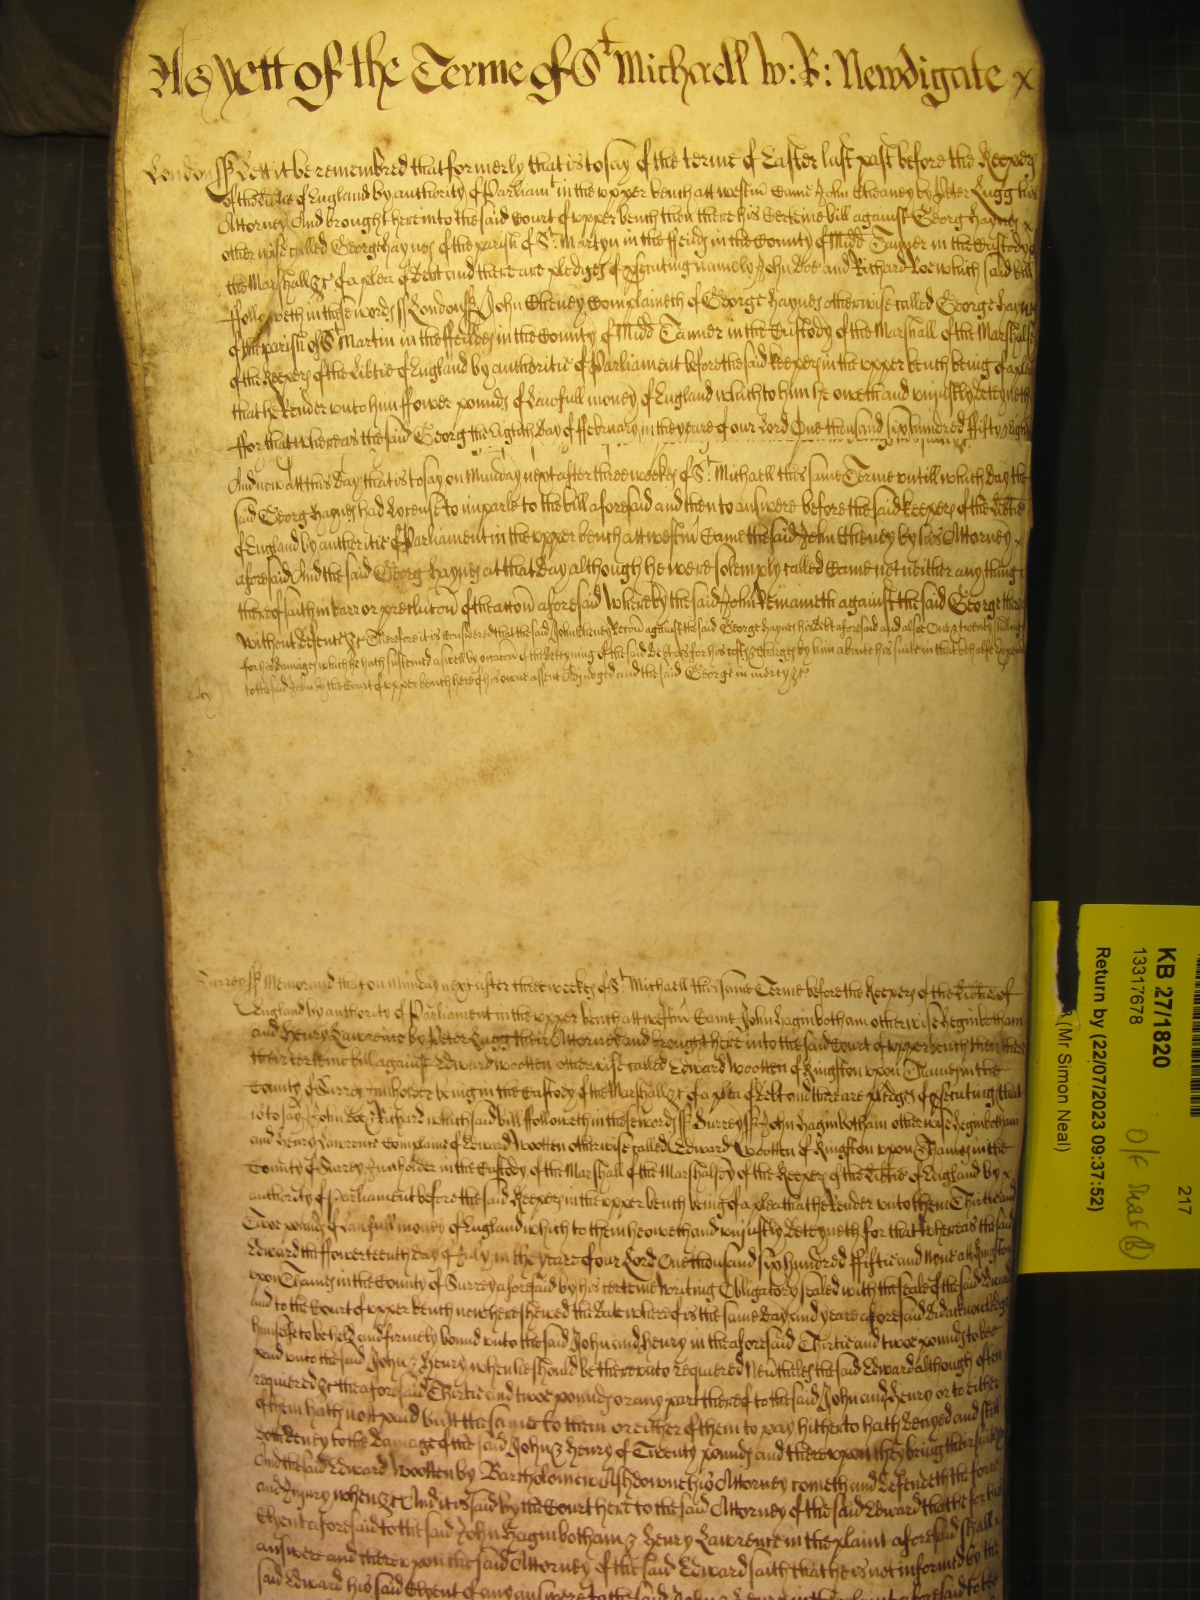 As yett of the Terme of St Michaell W: R: Newdigate
London ss Lett it be remembred that formerly that is to say of the terme of Easter last past before the Keepers
of the Libtie of England by authority of Parliamt in the upper bench att westm Came John Cheaney by Peter Lugg his
Attorney And brought here into the said Court of upper bench then there his Certeine bill against Georg Haynes
otherwise called George haynes of the parish of St Martyn in the ffeilds in the County of Midd Tanner in the Custody of
the Marshall &c of a plea of Debt and there are pledges of psecuting namely John Doe and Richard Roe which said bill
ffolloweth in these words ss London ss John Cheney Complaineth of George Haynes otherwise called George Haynes
of the parish of St Martin in the ffeildes in the County of Midd Tanner in the Custody of the Marshall of the Marshalsey
of the Keepers of the Libtie of England by authoritie of Parliament before the said keepers in the upper bench being of a plea
that he Render unto him ffower pounds of Lawfull money of England which to him he oweth and unjustly deteyneth
ffor that whereas the said Georg the eighth day of ffebruary in the yeare of our Lord One thousand six hundred ffifty eight
And now att this day that is to say on Munday next after three weekes of St Michaell this same Terme untill which day the
said Georg Haynes had license to imparle to the bill aforesaid and then to answere before the said keepers of the Libtie
of England by authoritie of Parliament in the upper bench att westm Came the said John Cheney by his Attorney
aforesaid And the said Georg Haynes at that day although he were solemply called Came not neither any thing
thereof saith in barr or preclucon of the accon aforesaid Whereby the said John Remaineth against the said George there
without defence &c Therefore it is Considered that the said John Cheney Recou against the said George Haynes his debt aforesaid and alsoe One & twenty shillings
for his damages which he hath susteined aswell by occacon of the deteyning of the said debt as for his costs & Charges by him aboute his suite in that behalfe
to the said John by the Court of upper bench here of his owne assent Adjudged and the said George in mercy &c
Surrey ss Memorand that on Munday next after three weekes of St Michaell this same Terme before the Keepers of the Libtie of
England by authority of Parliament in the upper bench att westm Came John Haginbotham otherwise Heginbotham
and Henry Lawrence by Peter Lugg their Attorney and brought here into the said Court of upper bench then there
their certeine bill against Edward Wootten otherwise called Edward Wootten of Kingston upon Thames in the
County of Surrey Inholder being in the Custody of the Marshall &c of a plea of debt and there are pledges of psecuting that
is to say John Doe & Richard which said bill followeth in these words ss Surrey ss John Haginbotham otherwise Heginbotham
and Henry Lawrence Complaine of Edward Wootten otherwise called Edward Wootten of Kingston upon Thames in the
County of Surrey Innholder in the Custody of the Marshall of the Marshalsey of the Keepers of the Libtie of England by
authority of Parliament before the said Keepers in the upper bench being of a plea that he Render unto them Thirtie and
Twoe pounds of Lawfull money of England which to them he oweth and unjustly deteyneth for that whereas the said
Edward the ffowerteenth day of July in the yeare of our Lord One thousand six hundred ffiftie and Nyne att Kingston
upon Thames in the County of Surrey aforesaid by his certeine Writing Obligatory sealed with the seale of the said Edward
and to the Court of upper bench now here shewed the date whereof is the same day and yeare aforesaid did acknowledge
himselfe to be held and firmely bound unto the said John and Henry in the aforesaid Thirtie and twoe pounds to bee
paid unto the said John & Henry when he should be thereunto required Neverthelesse the said Edward although often
required &c the aforesaid Thirtie and twoe pounds or any part thereof to the said John and Henry or to either
of them hath nott paid butt the same to them or either of them to pay hitherto hath denyed and still
doth deny to the damage of the said John & Henry of Twenty pounds and thereupon they bring their suite
And the said Edward Wootten by Bartholomew Ashdowne his Attorney cometh and defendeth the force
and Injury when &c And it is said by the Court here to the said Attorney of the said Edward that he for his
Clyent aforesaid to the said John Haginbotham & Henry Lawrence in the plaint aforesaid shall
answere and thereupon the said Attorney of the said Edward saith that he is not informed by the
said Edward his said Clyent of any answere to the said John & Henry in the plaint aforesaid to be
KB 27/1820
13317678
217
Return by (22/07/2023 09:37:52)
(Mr Simon Neal)